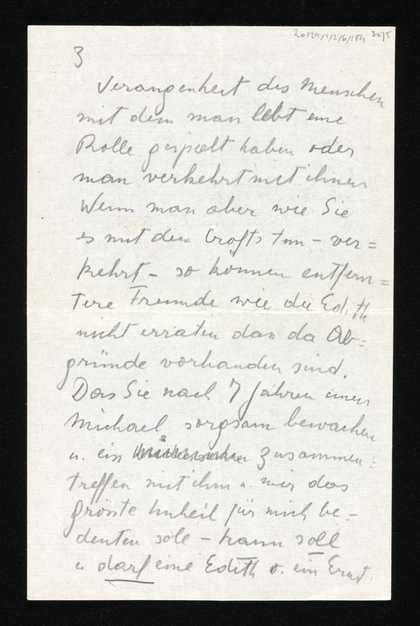 3
Verangenheit des Menschen
mit dem man lebt eine
Rolle gespielt haben oder
man verkehrt mit ihnen
Wenn man aber wie Sie
es mit den Crofts tun – ver=
kehrt – so können entfern=
tere Freunde wie die Edith
nicht erraten dass da Ab=
gründe vorhanden sind.
Dass Sie nach 7 Jahren einen
Michael sorgsam bewachen
u. ein zusammen=
treffen mit ihm u. mir das
grösste Unheil für mich be–
deuten solle – kann soll
u darf eine Edith o. ein Ernst